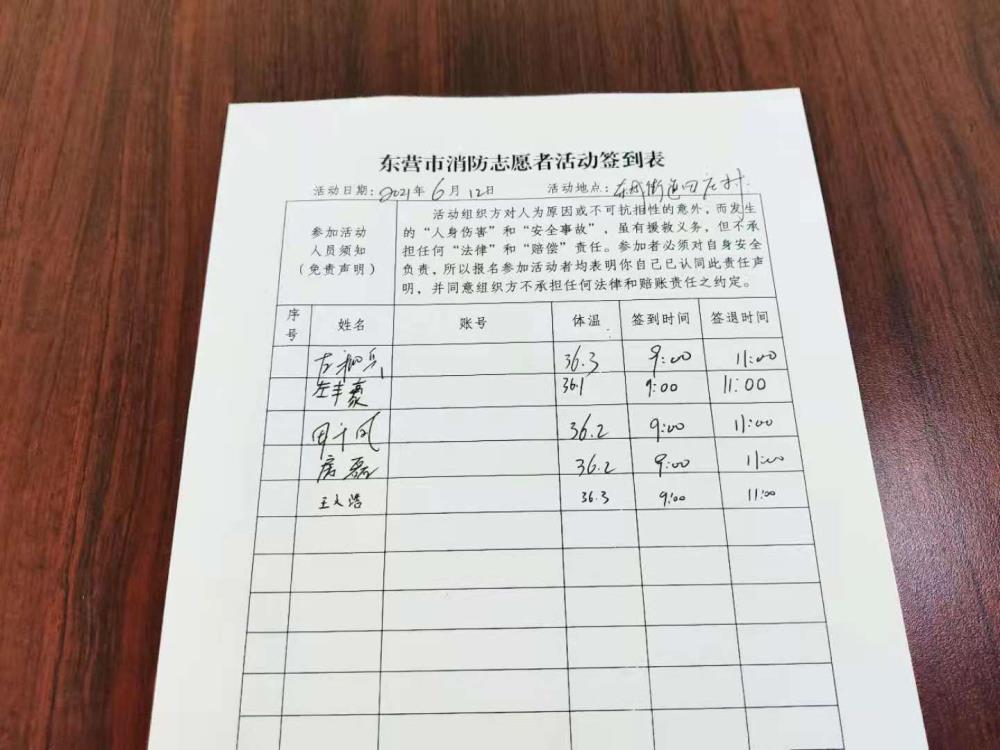 东营市消防志愿者活动签到表
活动日期：2021年6月12日 活动地点：东城街道 村
参加活动
人员须知
（免责声明）
活动组织方对人为原因或不可抗相性的意外，而发生
的“人身伤害”和“安全事故”，虽有援救义务，但不承
担任何“法律”和“赔偿”责任。参加者必须对自身安全
负责，所以报名参加活动者均表明你自己已认同此责任声
明，并同意组织方不承担任何法律和赔账责任之约定。
序号 姓名 账号 体温 签到时间 签退时间
36.3 9:00 11:00
左丰豪 36.1 9:00 11:00
36.2 9:00 11:00
房磊 36.2 9:00 11:00
王文浩 36.3 9:00 11:00